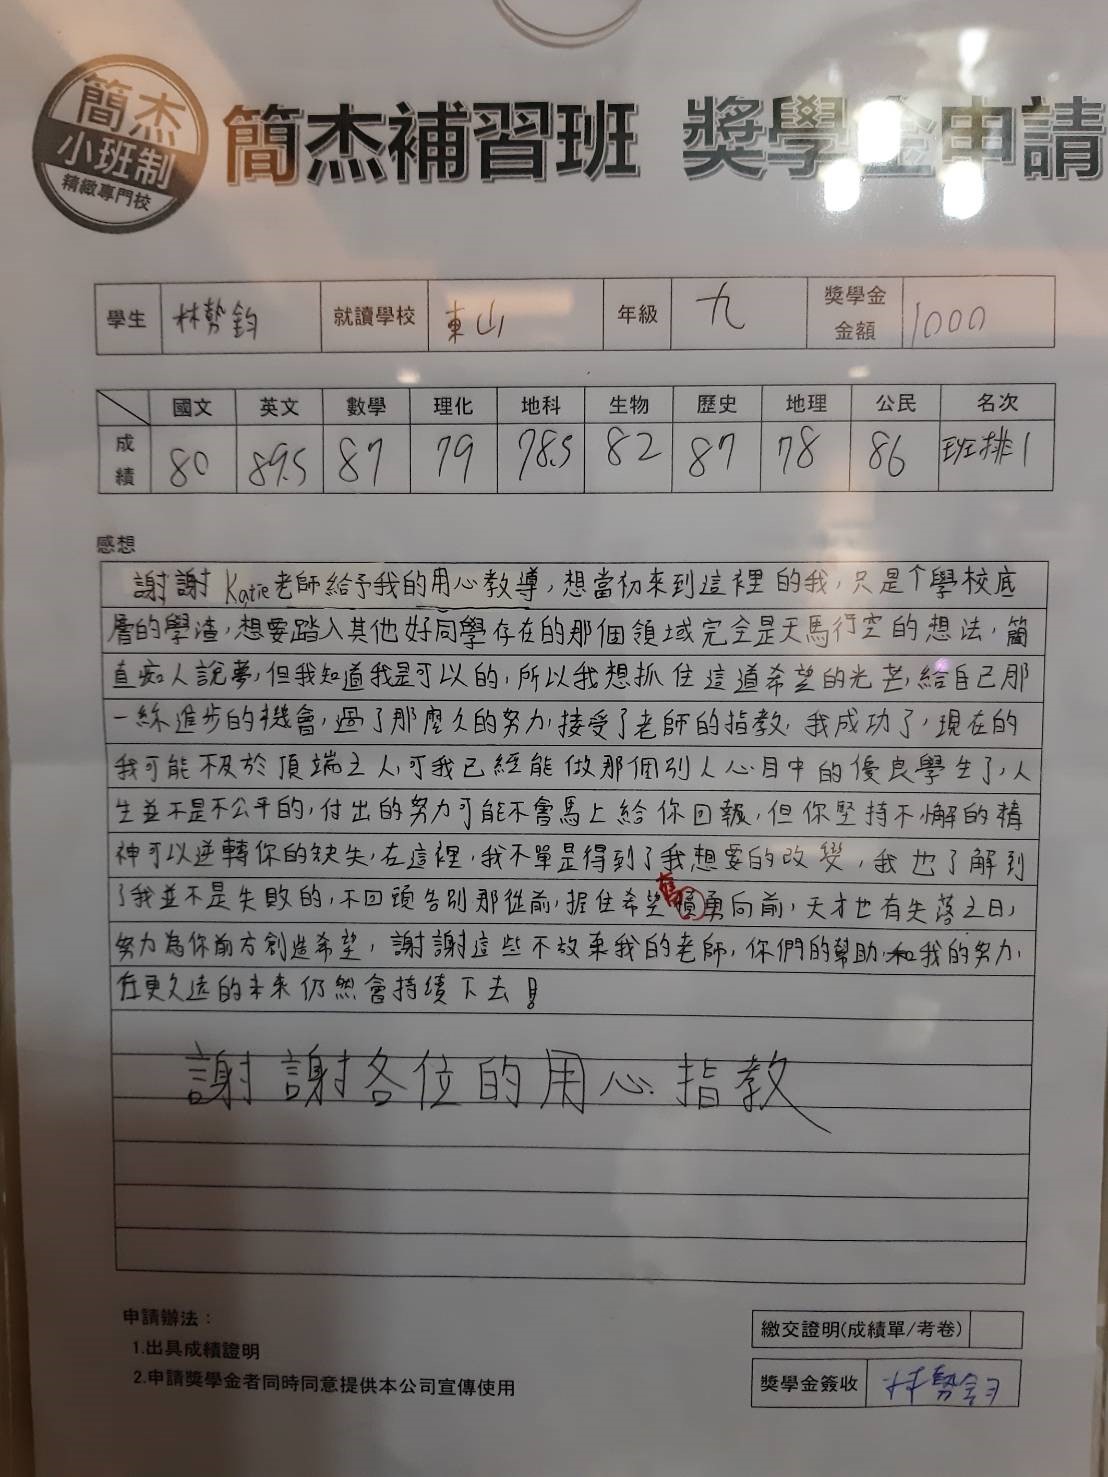 簡杰
小班制
精緻專門校
簡杰補習班 獎學金申請
學生 林勢鈞 就讀學校 東山 年級 九 獎學金金額 1000
國文 英文 數學 理化 地科 生物 歷史 地理 公民 名次
成績 80 89.5 87 79 78.5 82 87 78 86 班排1
感想
謝謝Katie老師給予我的用心教導,想當初來到這裡的我,只是个學校底
層的學渣,想要踏入其他好同學存在的那個領域完全是天馬行空的想法,簡
直痴人說夢,但我知道我是可以的,所以我想抓住這道希望的光芒,給自己那
一絲進步的機會,過了那麼久的努力,接受了老師的指教,我成功了,現在的
我可能不及於頂端之人,可我已經能做那個別人心目中的優良學生了,人
生並不是不公平的,付出的努力可能不會馬上給你回報,但你堅持不懈的精
神可以逆轉你的缺失,在這裡,我不單是得到了我想要的改變,我也了解到
了我並不是失敗的,不回頭告別那從前,握住希望奮勇向前,天才也有失落之日,
努力為你前方創造希望,謝謝這些不放棄我的老師,你們的幫助和我的努力,
在更久遠的未來仍然會持續下去!
謝謝各位的用心指教
申請辦法:
1.出具成績證明
2.申請獎學金者同時同意提供本公司宣傳使用
繳交證明(成績單/考卷)
獎學金簽收 林勢鈞